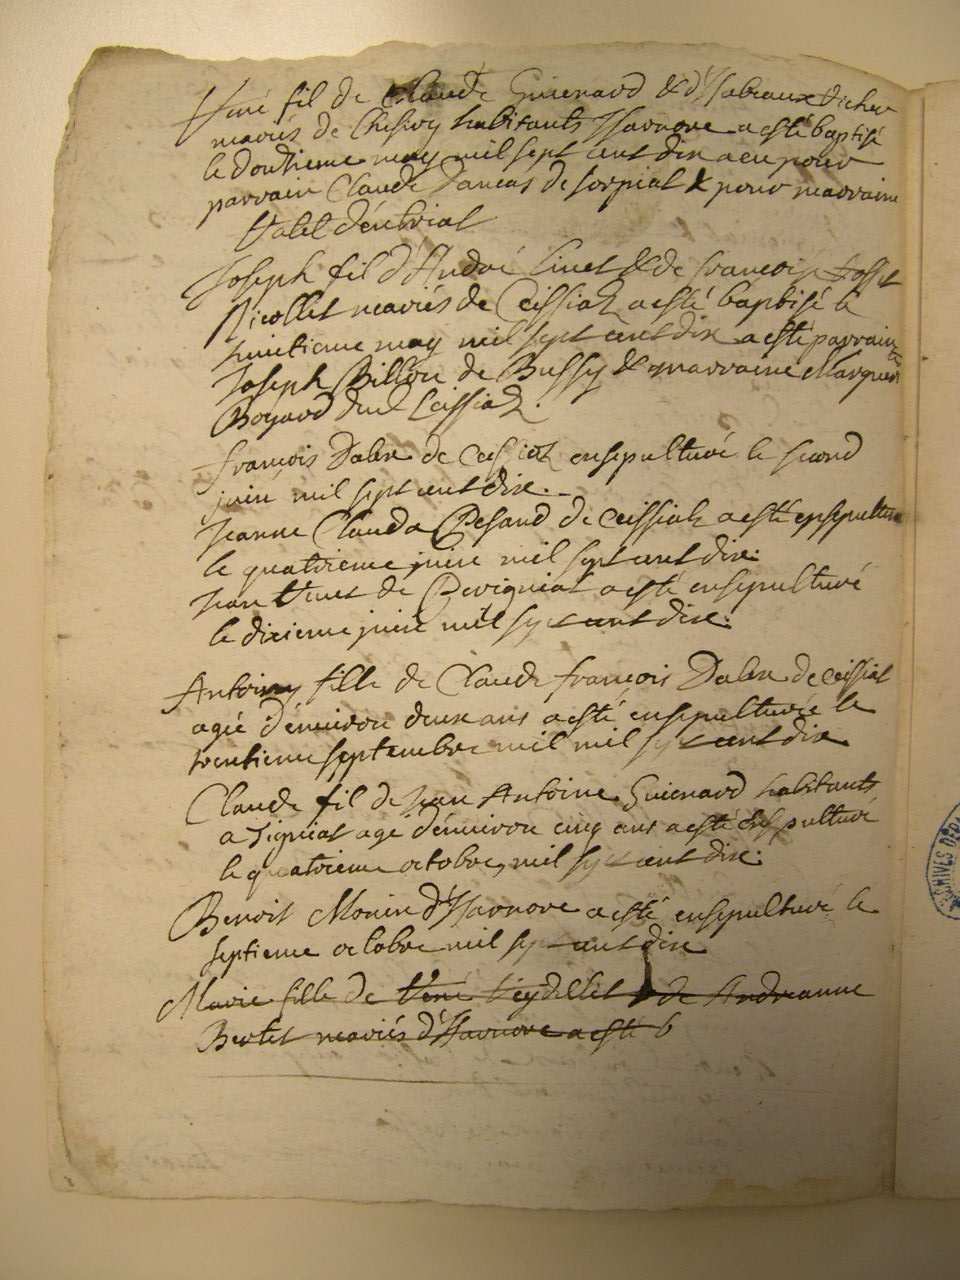 René fil de Claude Guienard & d'Isabeaux
mariés de Chesiry habitants Isarnore a esté baptisé
le douzieme may mil sept cent dix a eu pour
parrain Claude Dancas de sorpiat & pour marraine
d'entriat
Joseph fil d'André & de françoise
Nicollet mariés de Ceissiaz a esté baptisé le
huitieme may mil sept cent dix a esté parrain
Joseph Billion de Bussy & marraine Margueri
Boyard dud Ceissiaz.
françois Dalex de Ceissiaz ensepulturé le second
juin mil sept cent dix.
Jeanne Clauda de ceissiaz a esté ensepulturé
le quatrieme juin mil sept cent dix.
Jean de Perigniat a esté ensepulturé
le dixieme juin mil sept cent dix.
Antoiny fille de Claude françois Dalex de ceissiat
agée d'enuiron deux ans a esté ensepulturée le
trentieme septembre mil mil sept cent dix
Claude fil de Jean Antoine Guienard habitants
a Signiat agé d'enuiron cinq ans a esté ensepulturé
le quatrieme octobre mil sept cent dix.
Benoit Monin d'Isarnore a esté ensepulturé le
septieme octobre mil sept cent dix
Marie fille de René Veydellet & de Andreanne
Bertet mariés d'Isarnore a esté b
ARCHIVES DÉPA